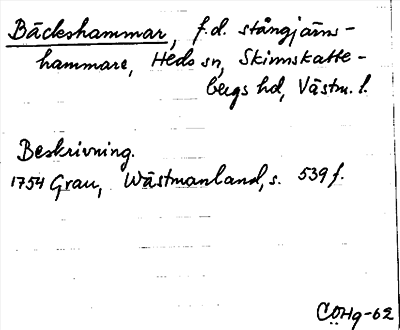 Bäckshammar, f.d. stångjärns-
hammare, Heds sn, Skinnskatte-
bergs hd, Västm. l.
Beskrivning.
1754 Grau, Wästmanland, s. 539 f.
CÖHg-62